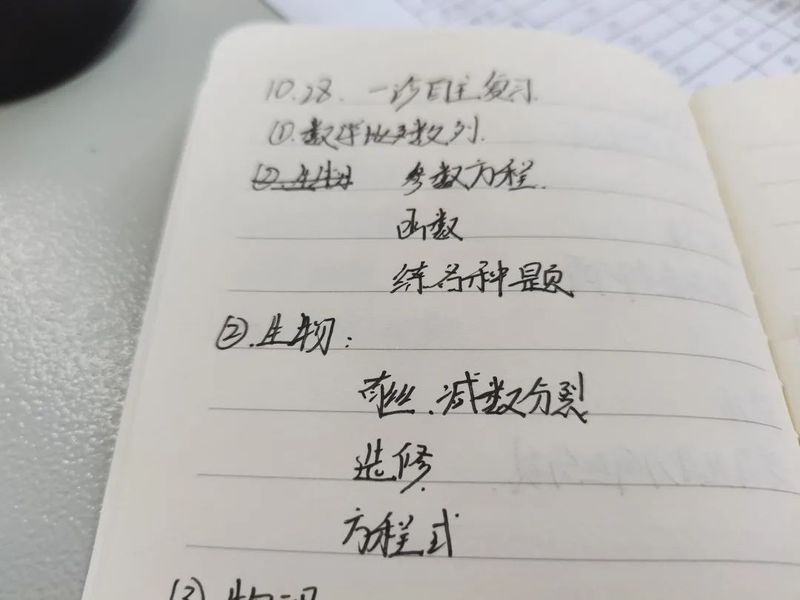 10.28. 一诊自主复习.
①.数学 数列.
②.生物 参数方程.
函数
练各种题
②.生物:
有丝.减数分裂
选修.
方程式
(3).物理